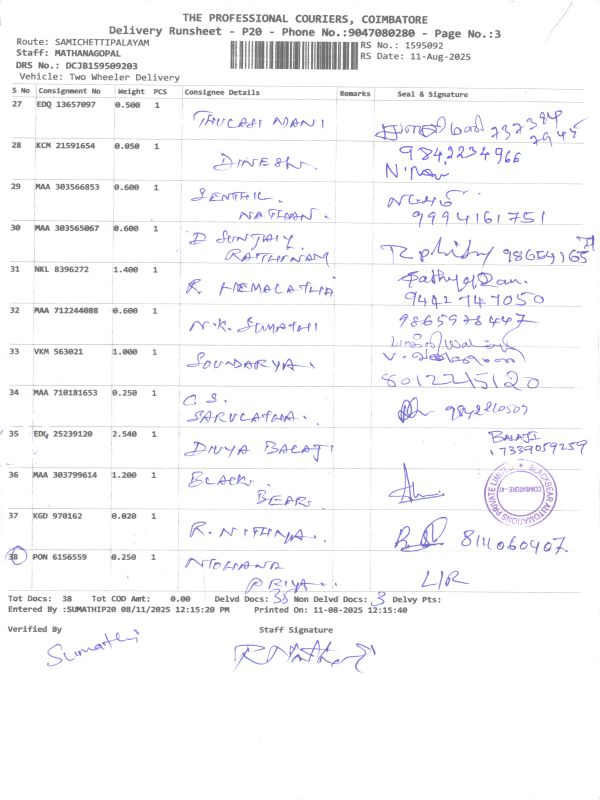 THE PROFESSIONAL COURIERS, COIMBATORE
Delivery Runsheet - P20 - Phone No.:9047080280 - Page No.:3
Route: SAMICHETTIPALAYAM
RS No.: 1595092
Staff: MATHANAGOPAL
RS Date: 11-Aug-2025
DRS No.: DCJB159509203
Vehicle: Two Wheeler Delivery
S No Consignment No Weight PCS Consignee Details Remarks Seal & Signature
27 EDQ 13657097 0.500 1
THULASI MANI
28 KCM 21591654 0.050 1 9842234966
DINESH.
29 MAA 303566853 0.600 1
SENTHIL
NATHAN. 9994161751
30 MAA 303565067 0.600 1
D
RATHINAM
31 NKL 8396272 1.400 1
R HEMALATHA 9442747050
32 MAA 712244088 0.600 1 9865978447
N.K. SUMATHI
33 VKM 563021 1.000 1
SOUNDARYA. 8012215120
34 MAA 710181653 0.250 1
G.S.
35 EDQ 25239120 2.540 1 BALAJI
DIVYA BALAJI 7339059259
36 MAA 303799614 1.200 1
BLACK
BEAR
BLACKBEAR AUTOMATIONS PRIVATE LIMITED
COIMBATORE - 41
37 KGD 970162 0.020 1
R. NITHYA. 8111060407.
38 PON 6156559 0.250 1
MOHANA
PRIYA. L/R
Tot Docs: 38 Tot COD Amt: 0.00 Delvd Docs: 35 Non Delvd Docs: 3 Delvy Pts:
Entered By :SUMATHIP20 08/11/2025 12:15:20 PM Printed On: 11-08-2025 12:15:40
Verified By Staff Signature
Sumathi